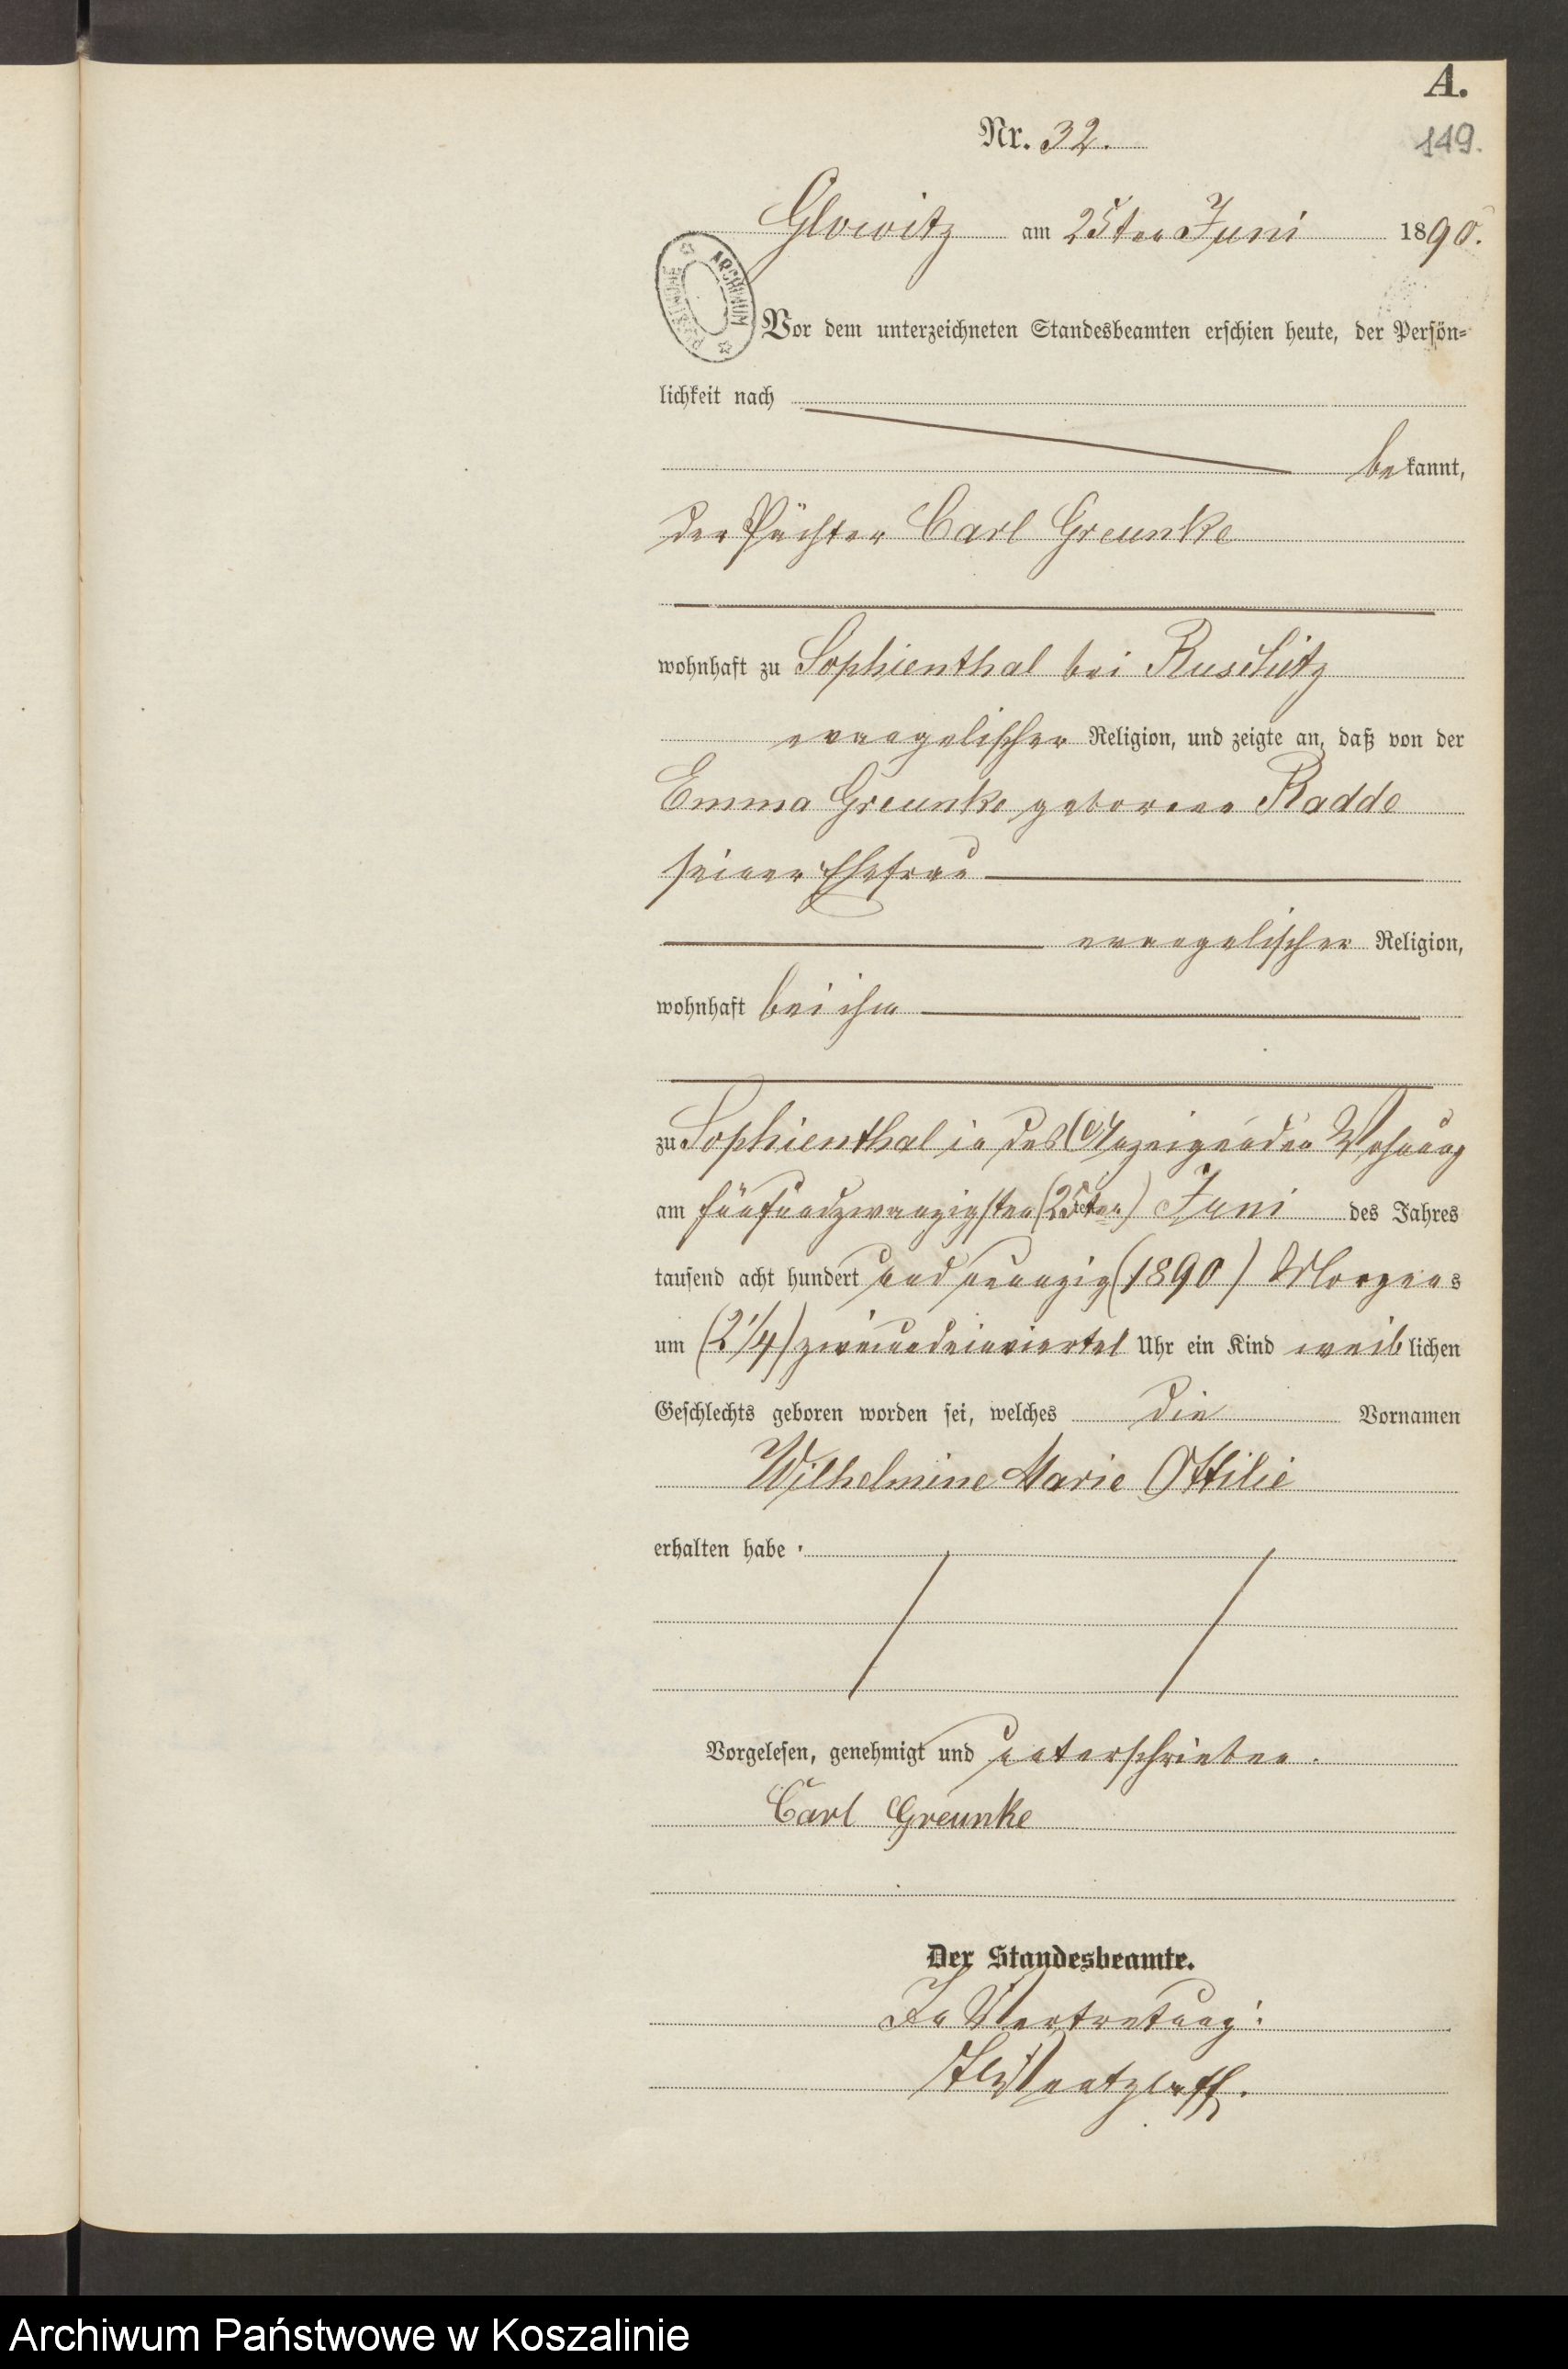 A.
Nr. 32.
149.
Glowitz am 25ten Juni 1890.
ARCHIWUM
Vor dem unterzeichneten Standesbeamten erschien heute, der Persön=
lichkeit nach
bekannt,
der Pächter Carl Greunke
wohnhaft zu Sophienthal bei Ruschütz
evangelischer Religion, und zeigte an, daß von der
Emma Greunke geborene Radde
seiner Ehefrau
evangelischer Religion,
wohnhaft bei ihm
zu Sophienthal in des Anzeigenden Wohnung
am fünfundzwanzigsten (25ten) Juni des Jahres
tausend acht hundert und neunzig (1890) Morgens
um (2 1/4) zweiundeinviertel Uhr ein Kind weiblichen
Geschlechts geboren worden sei, welches die Vornamen
Wilhelmine Marie Ottilie
erhalten habe.
Vorgelesen, genehmigt und unterschrieben.
Carl Greunke
Der Standesbeamte.
In Vertretung:
Archiwum Państwowe w Koszalinie